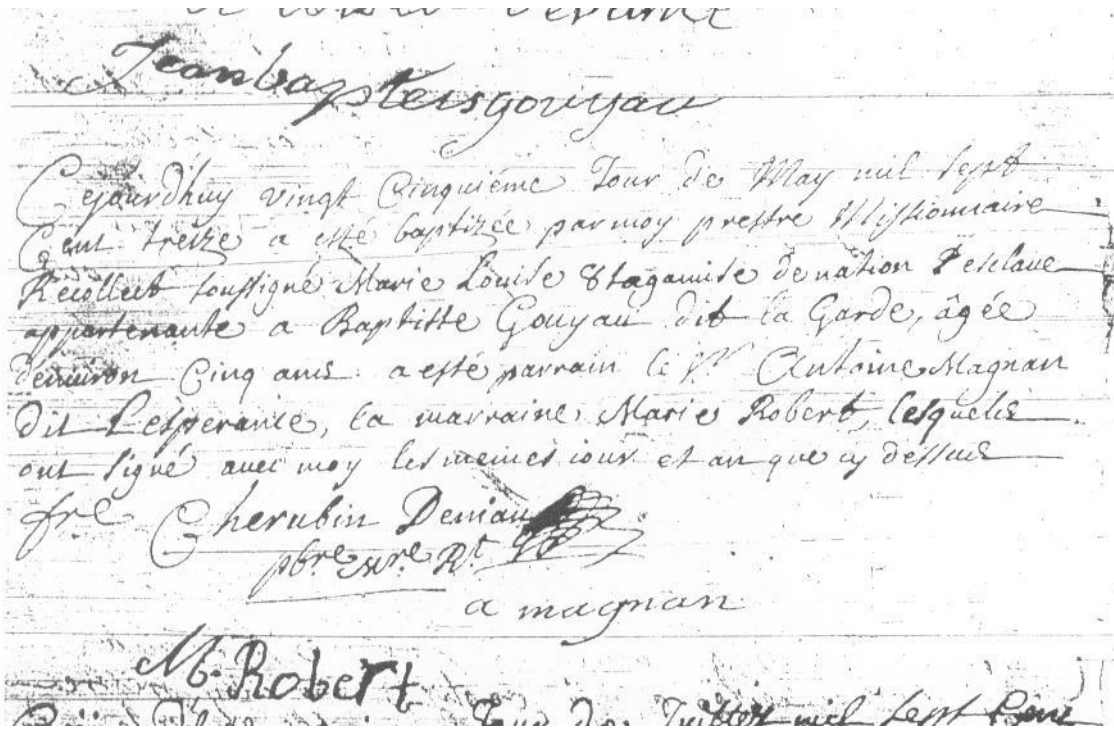 Jean bapteis gouyau
Cejourdhuy vingt Cinquiéme Jour de May mil sept
Cent treize a esté baptizée par moy prestre Missionnaire
Recollect soussigné Marie Louise 8tagamise de nation & esclave
appartenante a Baptiste Gouyau dit la Garde, âgée
denuiron Cinq ans. a esté parrain le Sr Antoine Magnan
dit L'esperance, la marraine Marie Robert, lesquels
ont signé avec moy les memes iour et an que cy dessus
fre Cherubin Deniau
pbre Mre Rt
a magnan
M. Robert
Jour de Juillet mil sept Cent